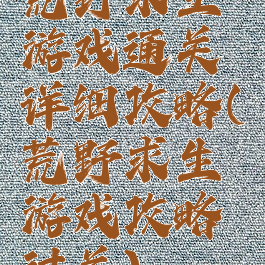 荒野求生
游戏通关
详细攻略(
荒野求生
游戏攻略